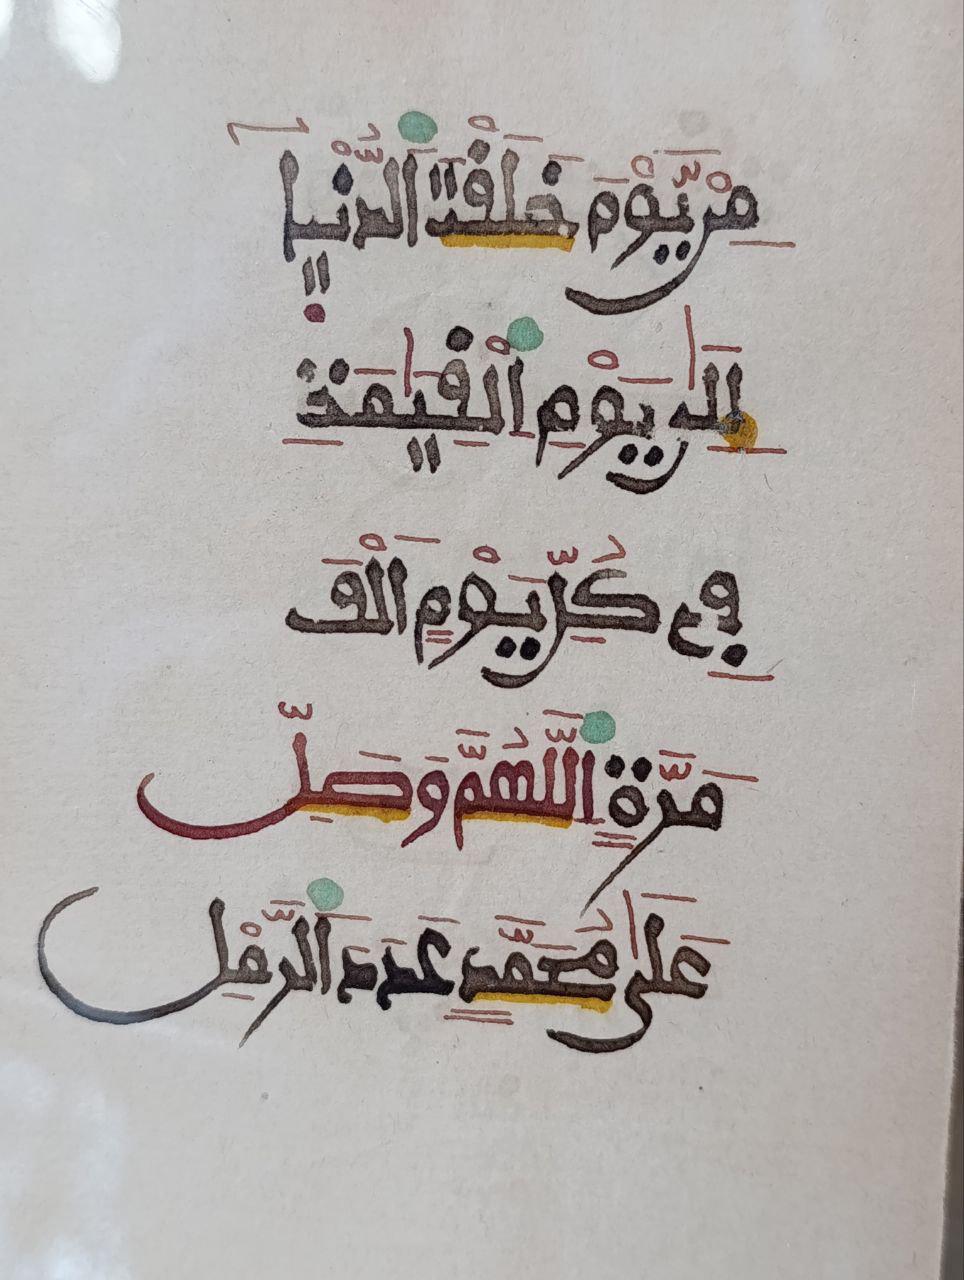 مِنْ يَّوْمِ خَلَقْتَ اَلدُّنْيَا
إِلَىٰ يَوْمِ اِ۬لْقِيَٰمَةِ
فِے كُلِّ يَوْمٍ اَلْفَ
مَرَّةٍ اَللَّهُمَّ وَصَلِّ
عَلَىٰ مُحَمَّدٍ عَدَدَ اَلرَّمْلِ